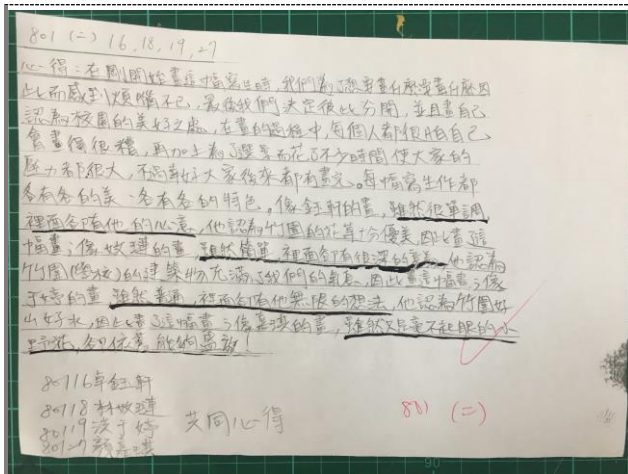 801 (二) 16,18,19,27
心得:在剛開始畫這幅寫生時,我們為了想要畫什麼沒畫什麼因
此而感到煩惱不已,最後我們決定彼此分開,並且畫自己
認為校園的美好之處,在畫的過程中,每個人都很怕自己
會畫得很糟,再加上為了選景而花了不少時間使大家的
壓力都很大,不過幸好大家後來都有畫完。每幅寫生作都
各有各的美,各有各的特色。像鈺軒的畫,雖然很單調
裡面卻有他的心意,他認為竹圍的花草十分優美,因此畫這
幅畫;像妏瑾的畫,雖然簡單,裡面卻有很深的意義,他認為
竹圍(學校)的建築物充滿了我們的氣息,因此畫這幅畫;像
于婷的畫,雖然普通,裡面卻有他無限的想法,他認為竹圍好
山好水,因此畫了這幅畫;像 的畫,雖然只是毫不起眼的小
野花,卻依舊能夠盛放!
80116卓鈺軒
80118林妏瑾
80119 于婷
80127
共同心得
801 (二)
90